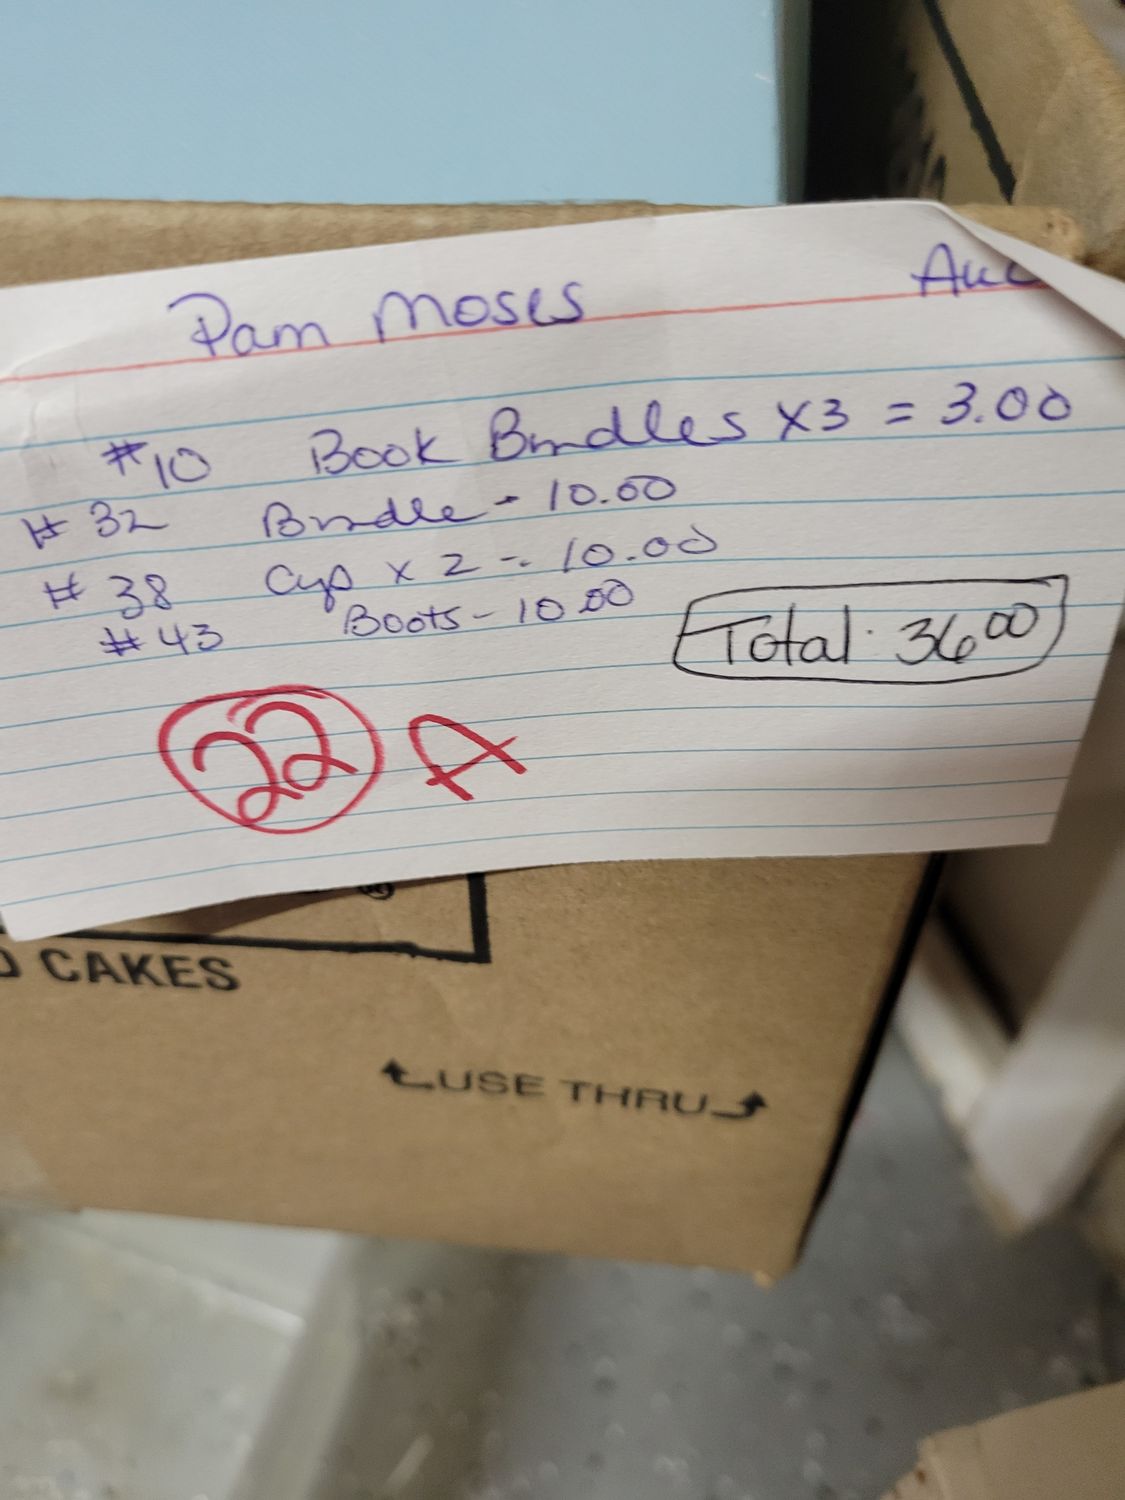 Pam Moses Auc
#10 Book Bundles x3 = 3.00
#32 Bundle - 10.00
#38 Cups x 2 - 10.00
#43 Boots - 10.00
Total: 36.00
22 A
CAKES
USE THRU